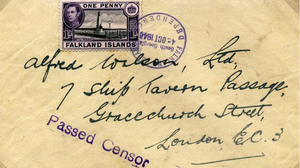 ONE PENNY
1D
FALKLAND ISLANDS
DEPENDENC
OCT 1944
Alfred Wilson, Ltd,
7 Ship Tavern Passage,
Gracechurch Street,
London, E.C. 3
Passed Censor